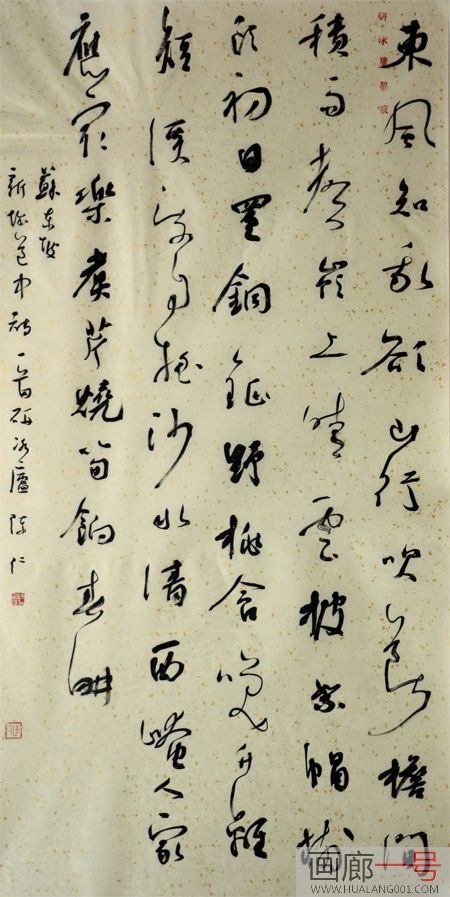 研冰廬墨痕
東風知我欲山行吹斷檐間
積雨聲嶺上晴雲披絮帽樹
頭初日罣銅鉦野桃含笑竹籬
短溪柳自搖沙水清西崦人家
應最樂煑芹燒筍餉春畊
蘇東坡
新城道中詩一首研冰廬陳仁
画廊一号
WWW.HUALANG001.COM